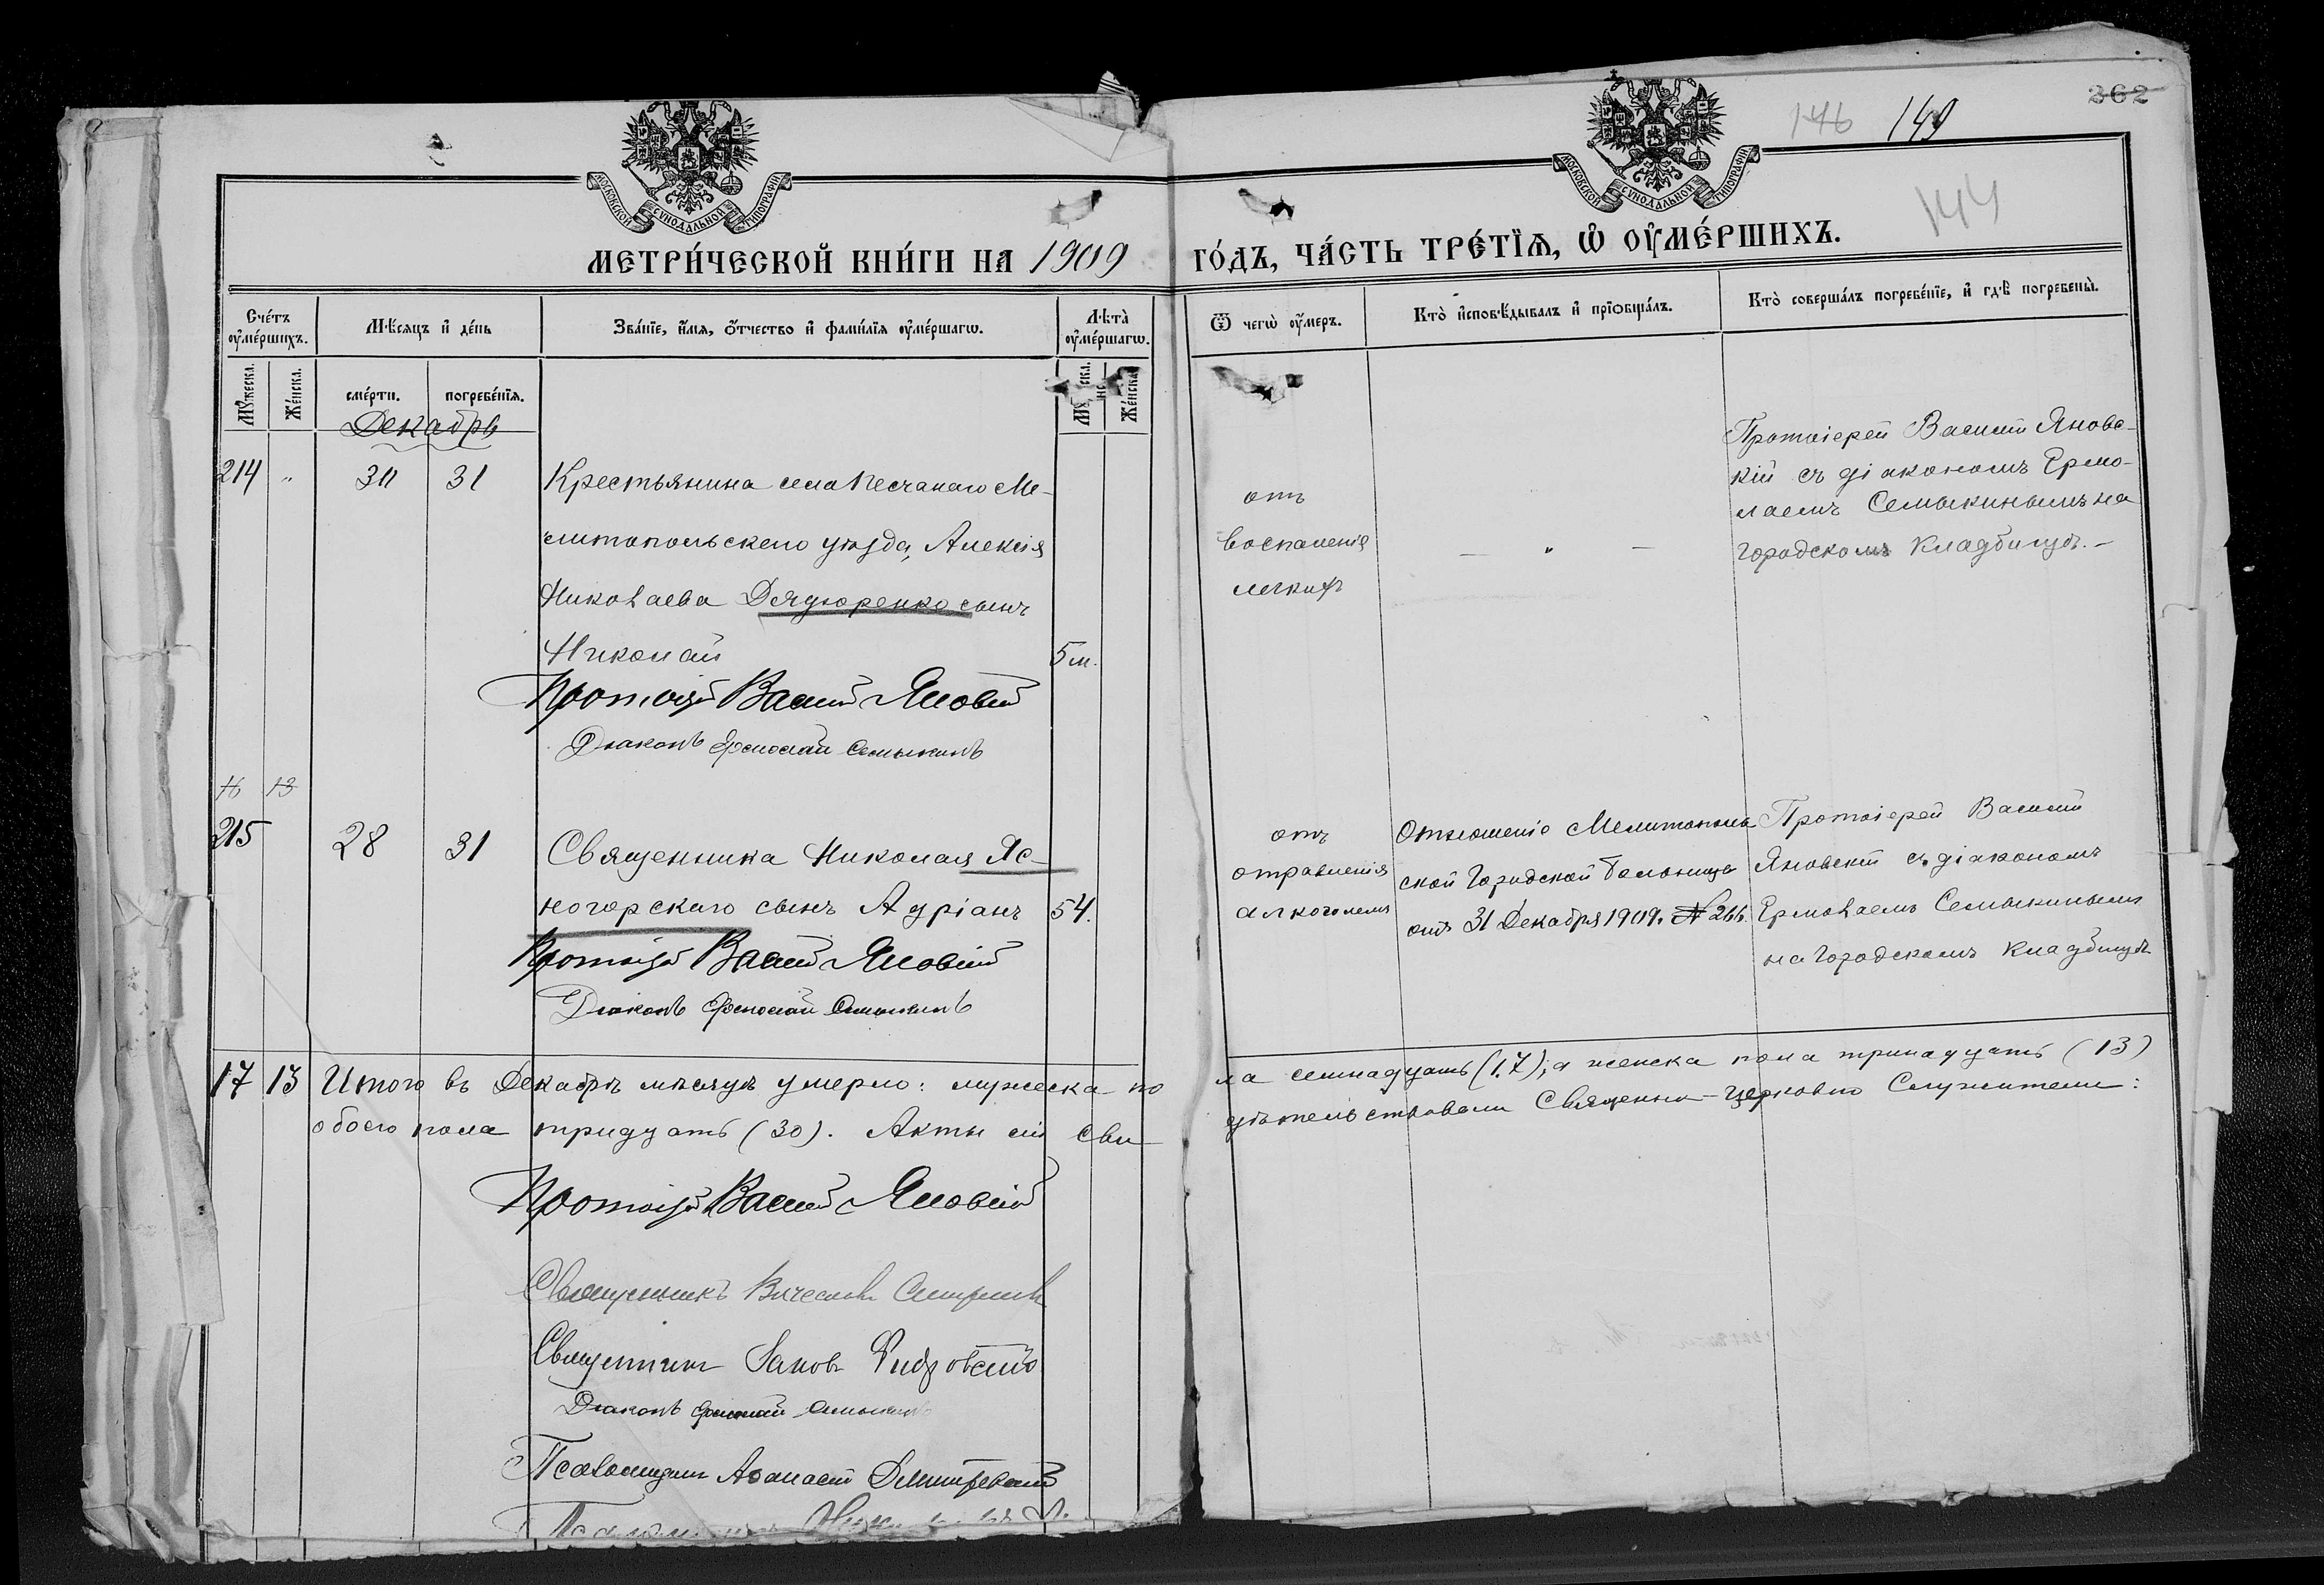 362
146 149
144
МОСКОВСКОЙ СѴНОДАЛЬНОЙ ТИПОГРАФІИ
МОСКОВСКОЙ СѴНОДАЛЬНОЙ ТИПОГРАФІИ
МЕТРИ́ЧЕСКОЙ КНИ́ГИ НА 1909 ГО́ДЪ, ЧА́СТЬ ТРЕ́ТІѦ, Ѡ҆ ОУ҆МЕ́РШИХЪ.
Сче́тъ оу҆ме́ршихъ.
Мѣ́сяцъ и҆ де́нь
Зва́нїе, и҆́мя, ѻ҆́тчество и҆ фами́лїя оу҆ме́ршагѡ.
Лѣта̀ оу҆ме́ршагѡ.
Ѿ чегѡ̀ оу҆́меръ.
Кто̀ и҆сповѣ́дывалъ и҆ прїѡбща́лъ.
Кто̀ соверша́лъ погребе́нїе, и҆ гдѣ̀ погребены̀.
Мꙋ́жеска. Же́нска. сме́рти. погребе́нїя. Же́нска.
Декабрь
214 „ 30 31 Крестьянина села Песчанаго Ме-
литопольскаго уѣзда, Алексія
Николаева Дядюренко сынъ
Николай 5 м.
Протоіерей Василій Яновскій
Діаконъ Ермолай Семыкинъ
отъ
воспаленія
легкихъ
— „ —
Протоіерей Василій Яновс-
кій съ діакономъ Ермо-
лаемъ Семыкинымъ на
Городскомъ Кладбищѣ. —
16 13
215 28 31 Священника Николая Яс-
ногорскаго сынъ Адріанъ 54.
Протоіерей Василій Яновскій
Діаконъ Ермолай Семыкинъ
отъ
отравленія
алкоголемъ
Отношеніе Мелитополь
ской Городской Больницы
отъ 31 Декабря 1909. № 266.
Протоіерей Василій
Яновскій съ діакономъ
Ермолаемъ Семыкинымъ
на Городскомъ Кладбищѣ
17 13 Итого въ Декабрѣ мѣсяцѣ умерло: мужеска по
ла семнадцать (17), а женска пола тринадцать (13)
обоего пола тридцать (30). Акты сіи сви
дѣтельствовали Священно-церковно Служители:
Протоіерей Василій Яновскій
Священникъ Вячеславъ
Священникъ Іаковъ
Діаконъ Ермолай Семыкинъ
Псаломщикъ Аѳанасій Димитревскій